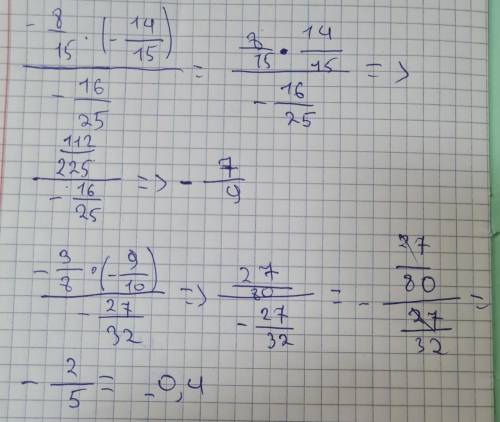 (-8/15 · (-14/15)) / (-16/25) = (8/15 · 14/15) / (-16/25) =>
(112/225) / (-16/25) => - 7/9
(-3/8 · (-9/10)) / (-27/32) => (27/80) / (-27/32) = - (27/80) / (27/32) =
- 2/5 = -0,4